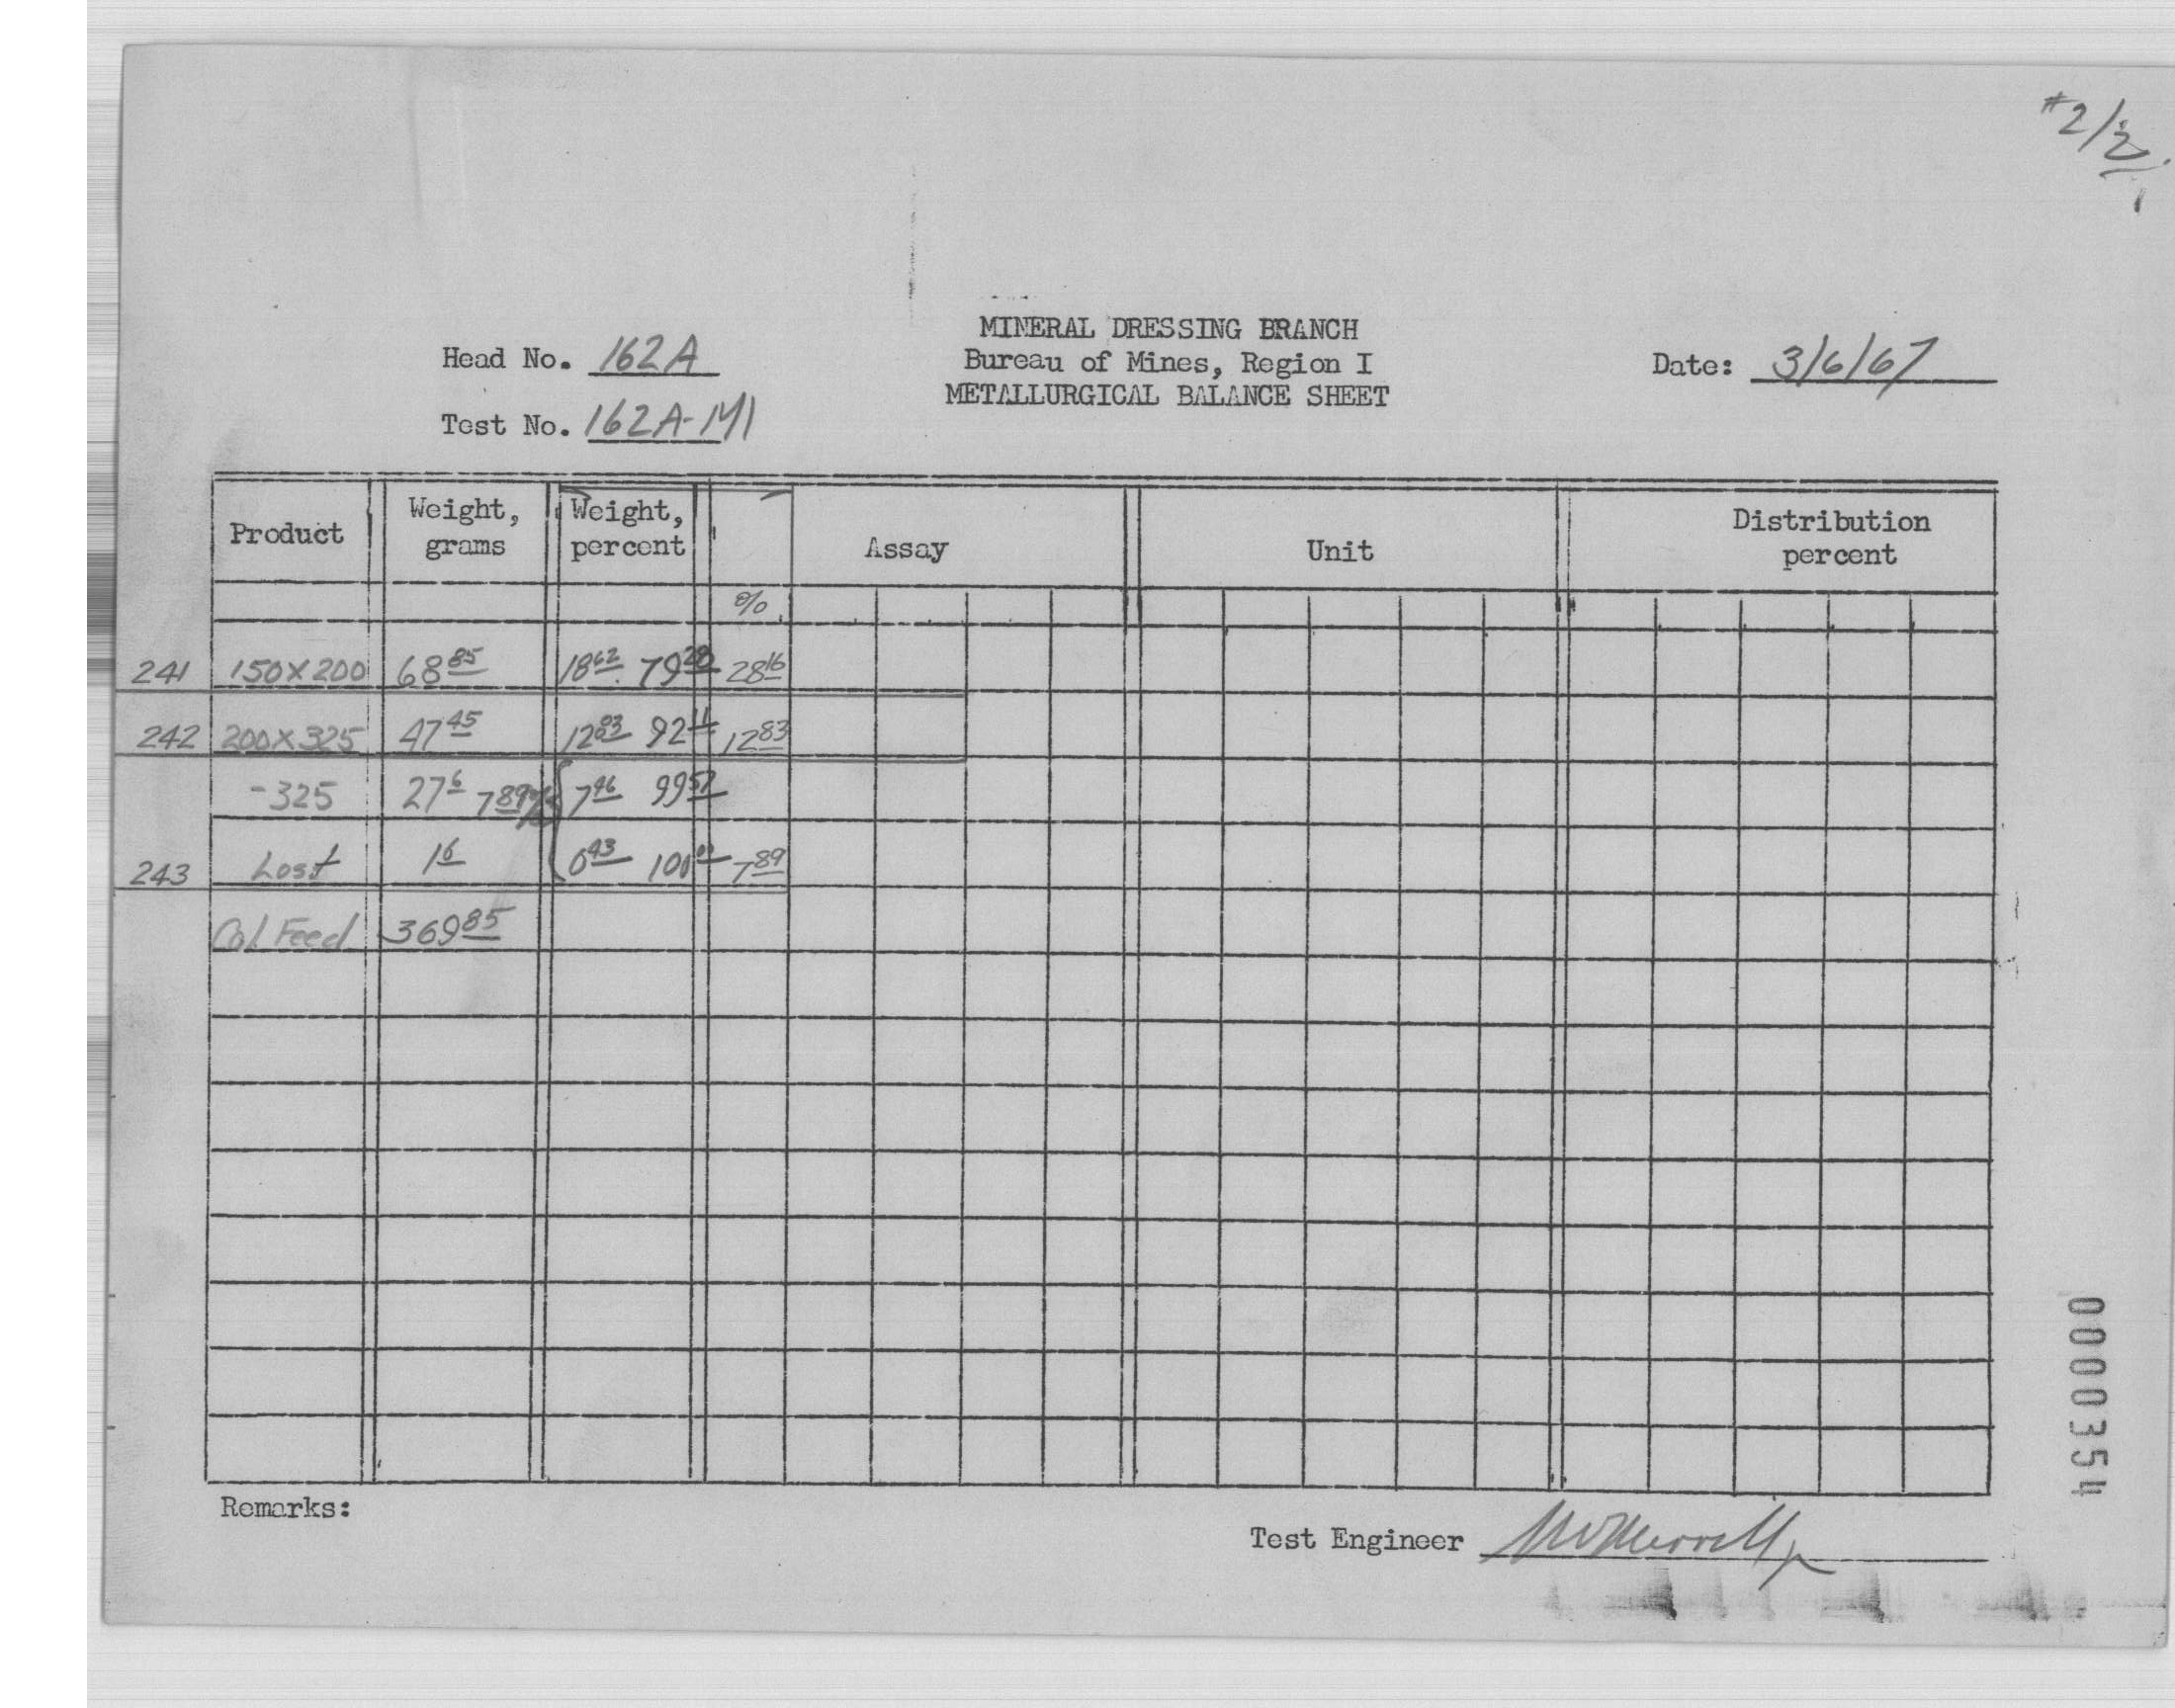 #2/2
MINERAL DRESSING BRANCH
Head No. 162A Bureau of Mines, Region I Date: 3/6/67
METALLURGICAL BALANCE SHEET
Test No. 162A-M1
Product Weight, grams Weight, percent Assay Unit Distribution percent
%
241 150X200 68 85 18 62 79 28 28 16
242 200X325 47 45 12 83 92 11 12 83
-325 27 6 7 89% 7 46 99 57
243 Lost 1 6 0 43 100 00 7 89
Cal Feed 369 85
Remarks:
Test Engineer
0000354